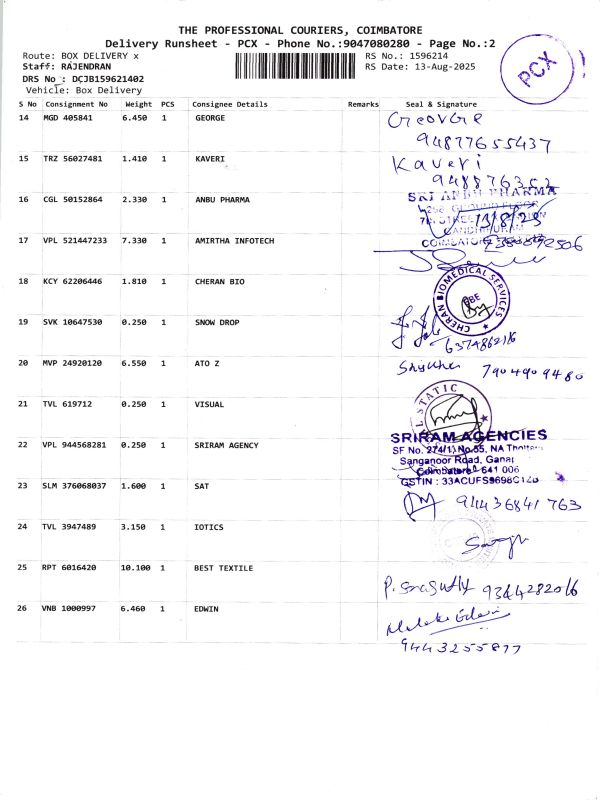 THE PROFESSIONAL COURIERS, COIMBATORE
Delivery Runsheet - PCX - Phone No.:9047080280 - Page No.:2
Route: BOX DELIVERY x
RS No.: 1596214
Staff: RAJENDRAN
RS Date: 13-Aug-2025
DRS No : DCJB159621402
Vehicle: Box Delivery
PCX
S No Consignment No Weight PCS Consignee Details Remarks Seal & Signature
14 MGD 405841 6.450 1 GEORGE
94877655437
15 TRZ 56027481 1.410 1 KAVERI Kaveri
16 CGL 50152864 2.330 1 ANBU PHARMA SRI ANBU PHARMA
GROUND FLOOR
13/8/25
17 VPL 521447233 7.330 1 AMIRTHA INFOTECH
18 KCY 62206446 1.810 1 CHERAN BIO CHERAN BIOMEDICAL SERVICES
19 SVK 10647530 0.250 1 SNOW DROP
20 MVP 24920120 6.550 1 ATO Z
7904909480
21 TVL 619712 0.250 1 VISUAL STATIC
22 VPL 944568281 0.250 1 SRIRAM AGENCY SRIRAM AGENCIES
SF No. 274/1, No.55, NA Thottam
Sanganoor Road, Ganap
Coimbatore - 641 006
GSTIN :
23 SLM 376068037 1.600 1 SAT
94436841763
24 TVL 3947489 3.150 1 IOTICS
25 RPT 6016420 10.100 1 BEST TEXTILE
9344282016
26 VNB 1000997 6.460 1 EDWIN
9443255877